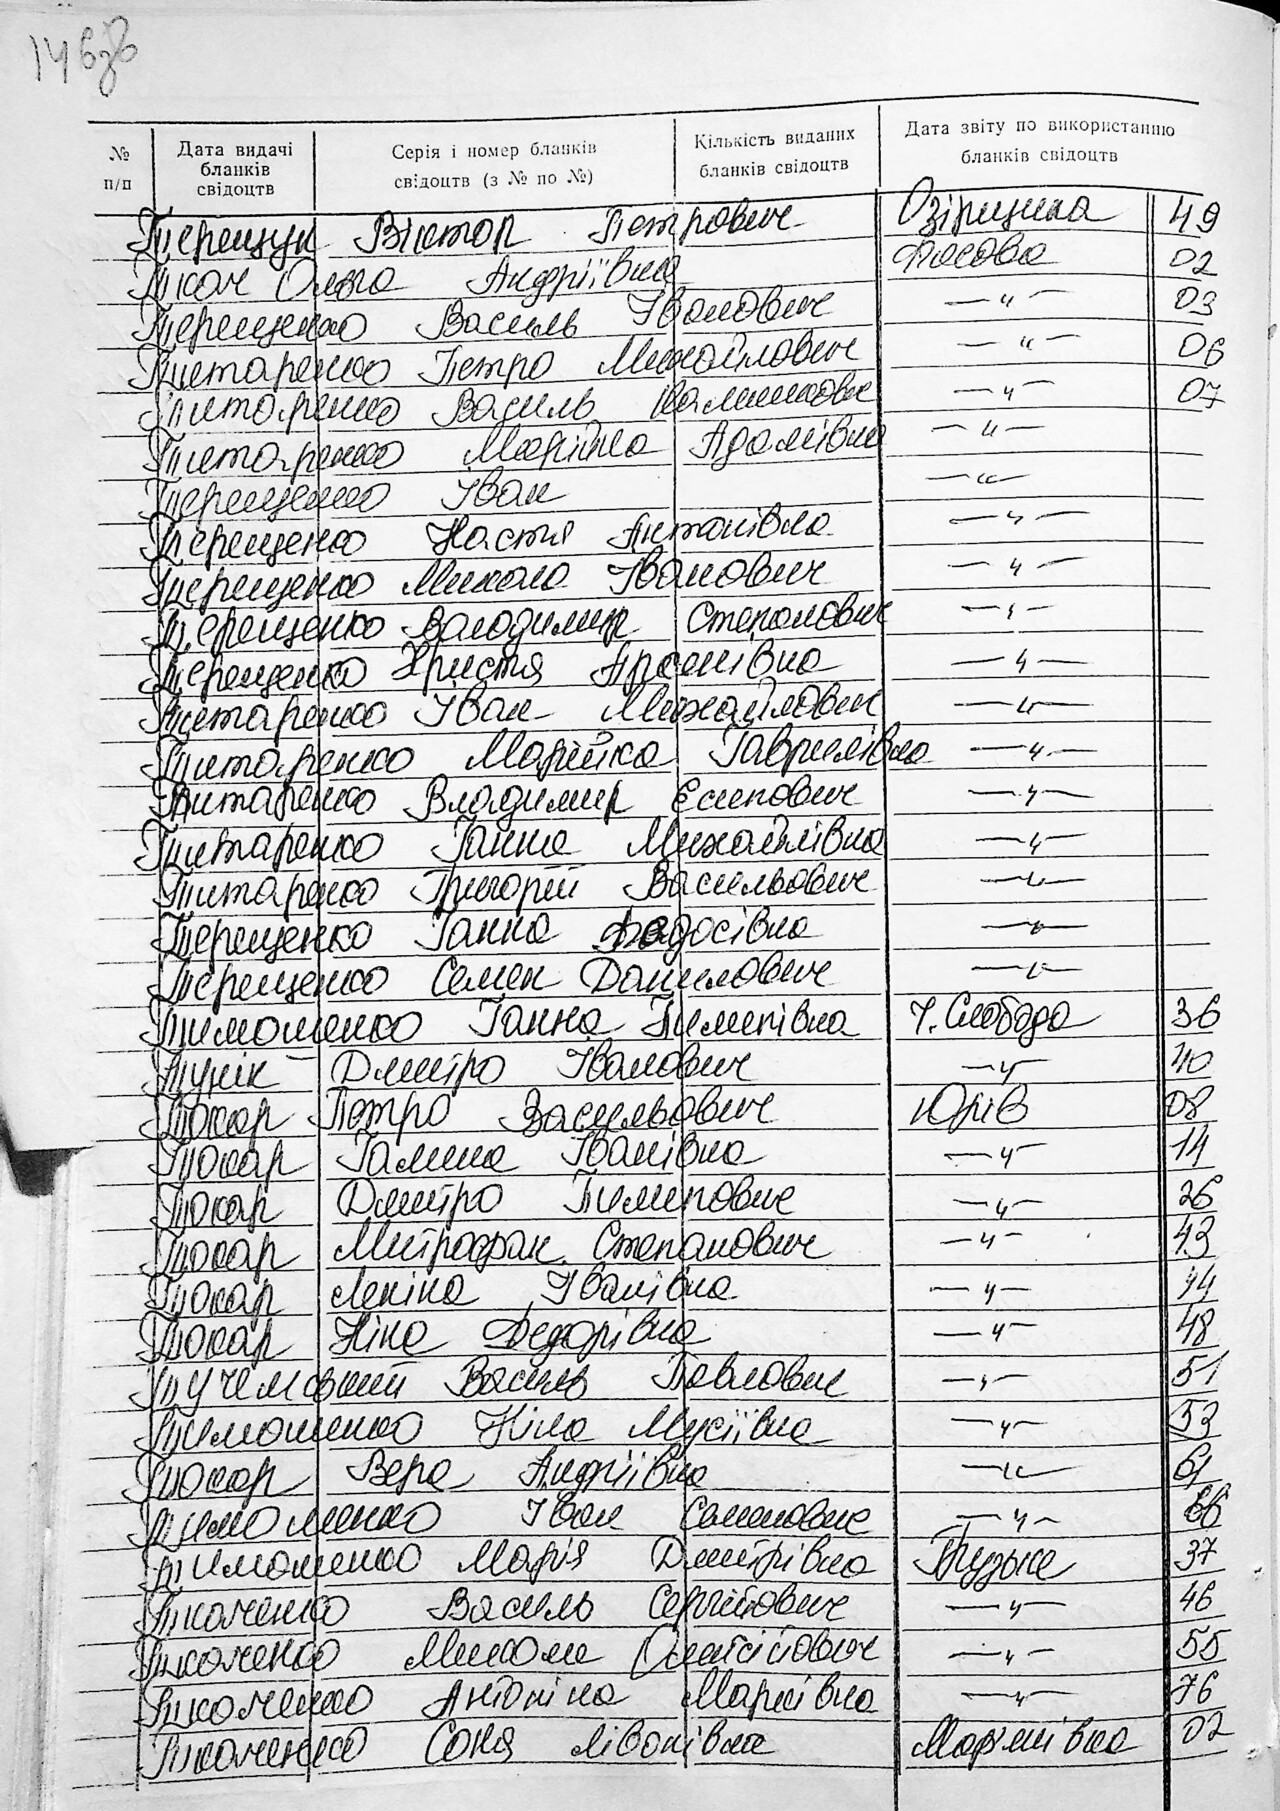 146зв
№ п/п Дата видачі бланків свідоцтв Серія і номер бланків свідоцтв (з № по №) Кількість виданих бланків свідоцтв Дата звіту по використанню бланків свідоцтв
Терещук Віктор Петрович Озірщина 49
Ткач Ольга Андріївна Фасова 02
Терещенко Василь Іванович —"— 03
Титаренко Петро Михайлович —"— 06
Титаренко Василь —"— 07
Титаренко Марійка Адамівна —"—
Терещенко Іван —"—
Терещенко Настя Антонівна —"—
Терещенко Микола Іванович —"—
Терещенко Володимир Степанович —"—
Терещенко Христя Арсенівна —"—
Титаренко Іван Михайлович —"—
Титаренко Марійка Гаврилівна —"—
Титаренко Владимир Єсипович —"—
Титаренко Ганна Михайлівна —"—
Титаренко Григорій Васильович —"—
Терещенко Ганна Федосівна —"—
Терещенко Семен Данилович —"—
Тимошенко Ганна Пилипівна Ч. Слобода 36
Тунік Дмитро Іванович —"— 40
Токар Петро Васильович Юрів 08
Токар Галина Іванівна —"— 14
Токар Дмитро Пилипович —"— 26
Токар Митрофан Степанович —"— 43
Токар Леніна Іванівна —"— 44
Токар Ніна Федорівна —"— 48
Василь Павлович —"— 51
Тимошенко Ніла Мусіївна —"— 53
Токар Вера Андріївна —"— 61
Тимошенко Іван Семенович —"— 66
Тимошенко Марія Дмитрівна 37
Ткаченко Василь Сергійович —"— 46
Ткаченко Микола —"— 55
Ткаченко Антоніна Марківна —"— 76
Ткаченко Соня Лівонівна Мар'янівка 02